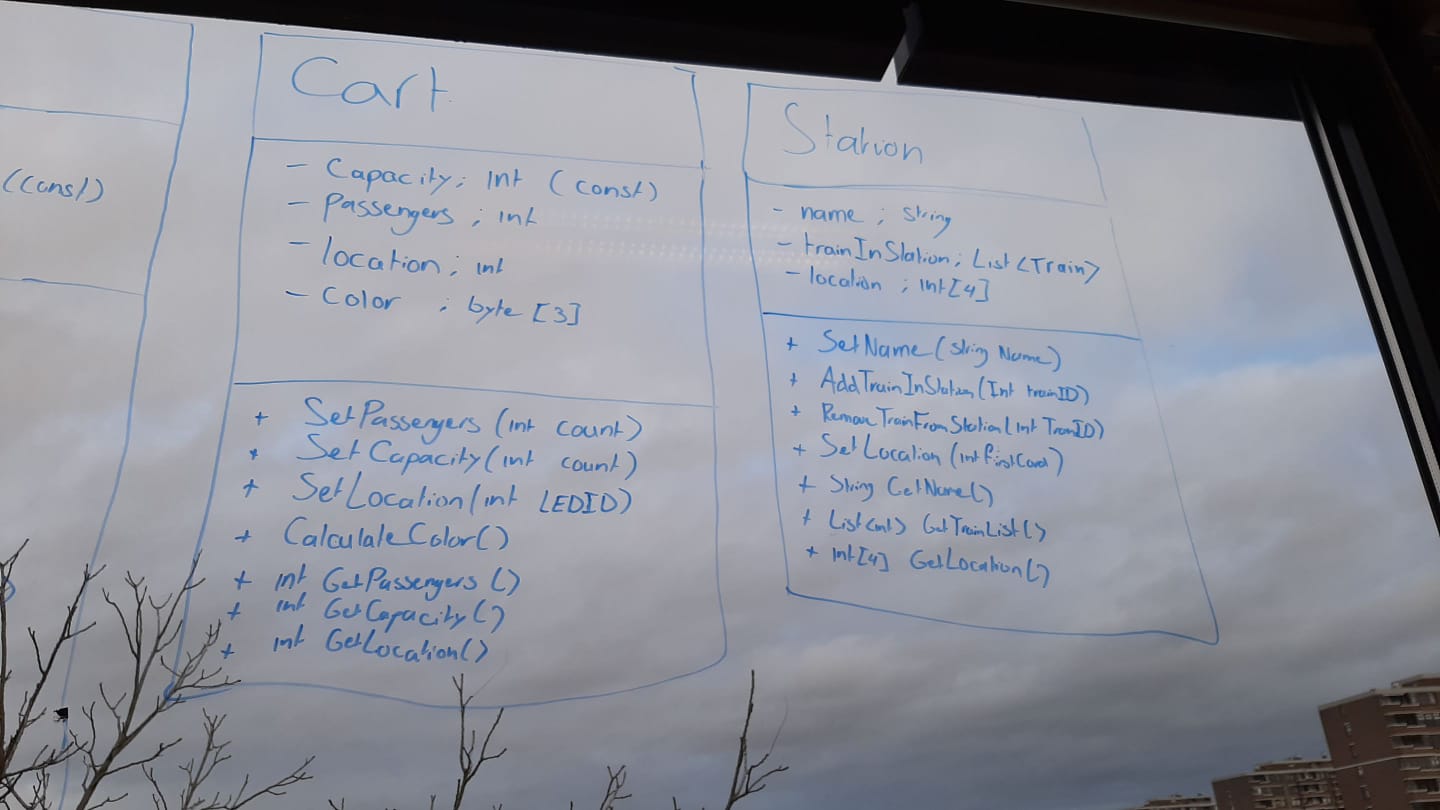 (const)
Cart
- Capacity; int (const)
- Passengers ; int
- location; int
- Color ; byte [3]
+ SetPassengers (int count)
+ SetCapacity(int count)
+ SetLocation(int LEDID)
+ CalculateColor()
+ int GetPassengers ()
+ int GetCapacity()
+ int GetLocation()
Station
- name ; string
- trainInStation; List<Train>
- location ; int[4]
+ SetName(string Name)
+ AddTrainInStation(Int trainID)
+ RemoveTrainFromStation(int TrainID)
+ SetLocation(int
+ String GetName()
+ List<int> GetTrainList()
+ int[4] GetLocation()